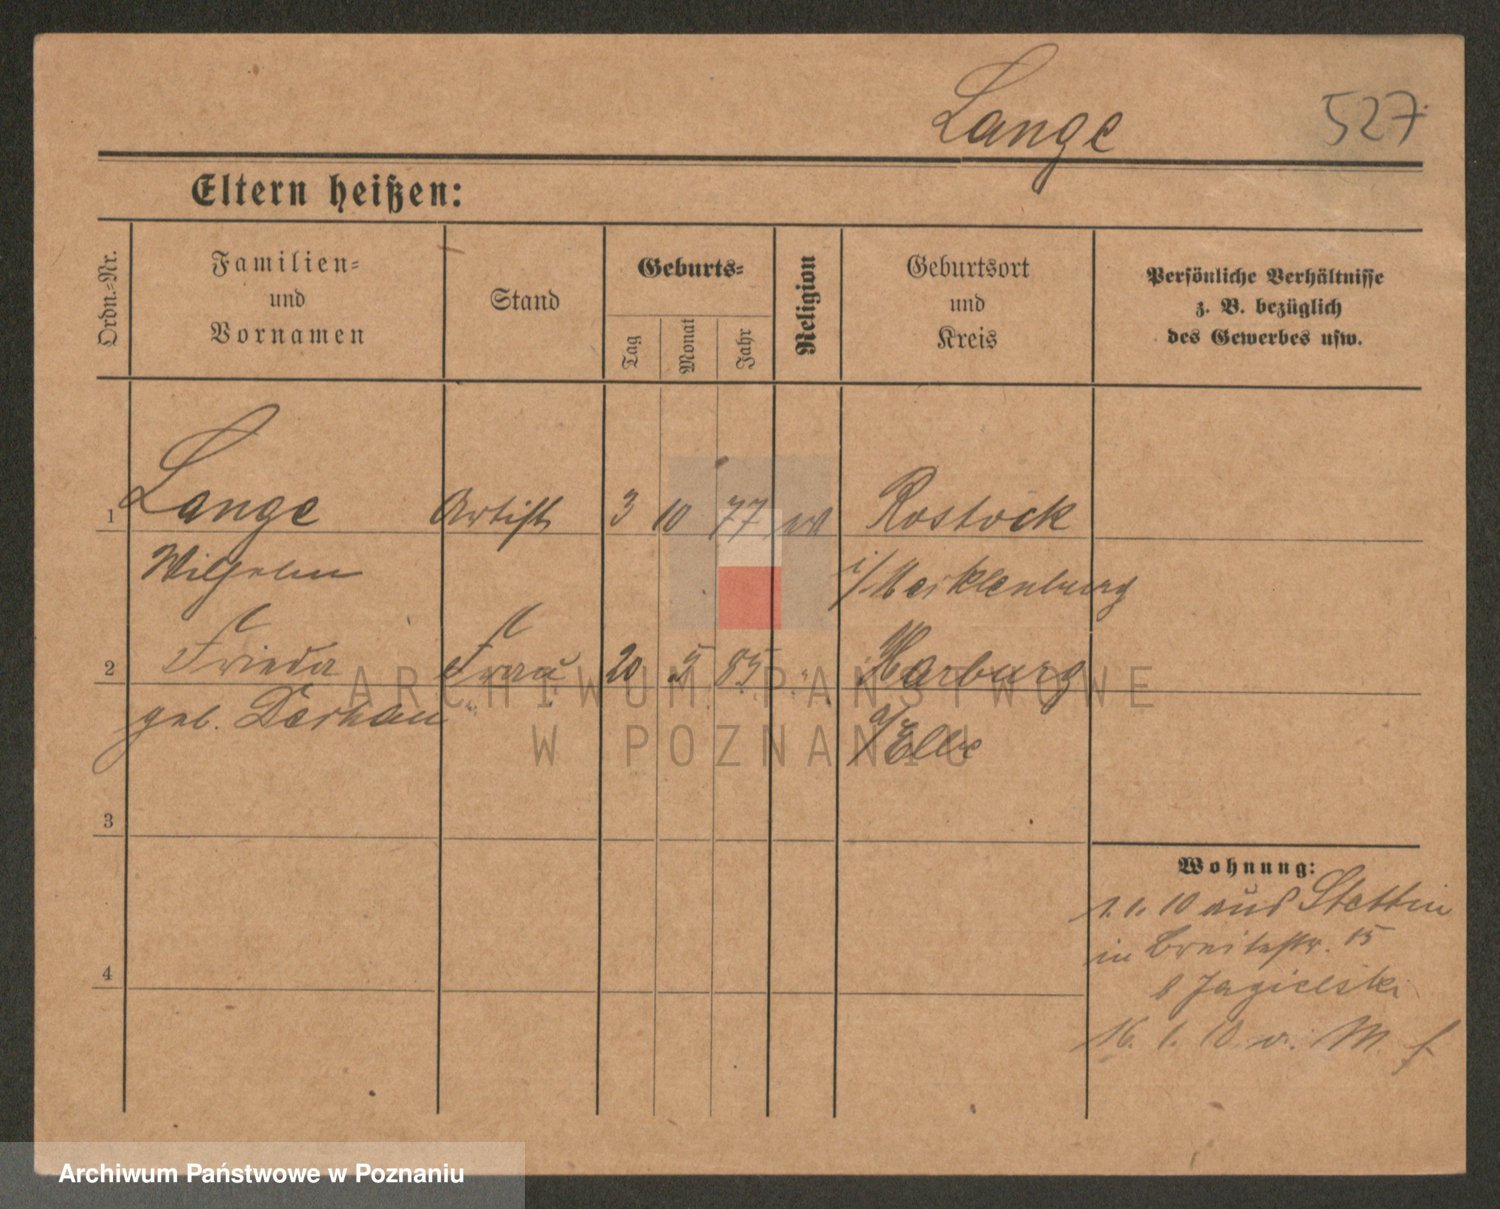 Lange 527
Eltern heißen:
Ordn.-Nr.
Familien-
und
Vornamen
Stand
Geburts-
Tag
Monat
Jahr
Religion
Geburtsort
und
Kreis
Persönliche Verhältnisse
z. B. bezüglich
des Gewerbes usw.
1 Lange Artist 3 10 77 Rostock
Wilhelm i/Mecklenburg
2 Frieda Frau 20 5 85 " Harburg
geb. a/Elbe
3
4
Wohnung:
1.1.10 aus Stettin
in Breitestr. 15
b Jagielski
16.1.10 v.
ARCHIWUM PAŃSTWOWE
W POZNANIU
Archiwum Państwowe w Poznaniu